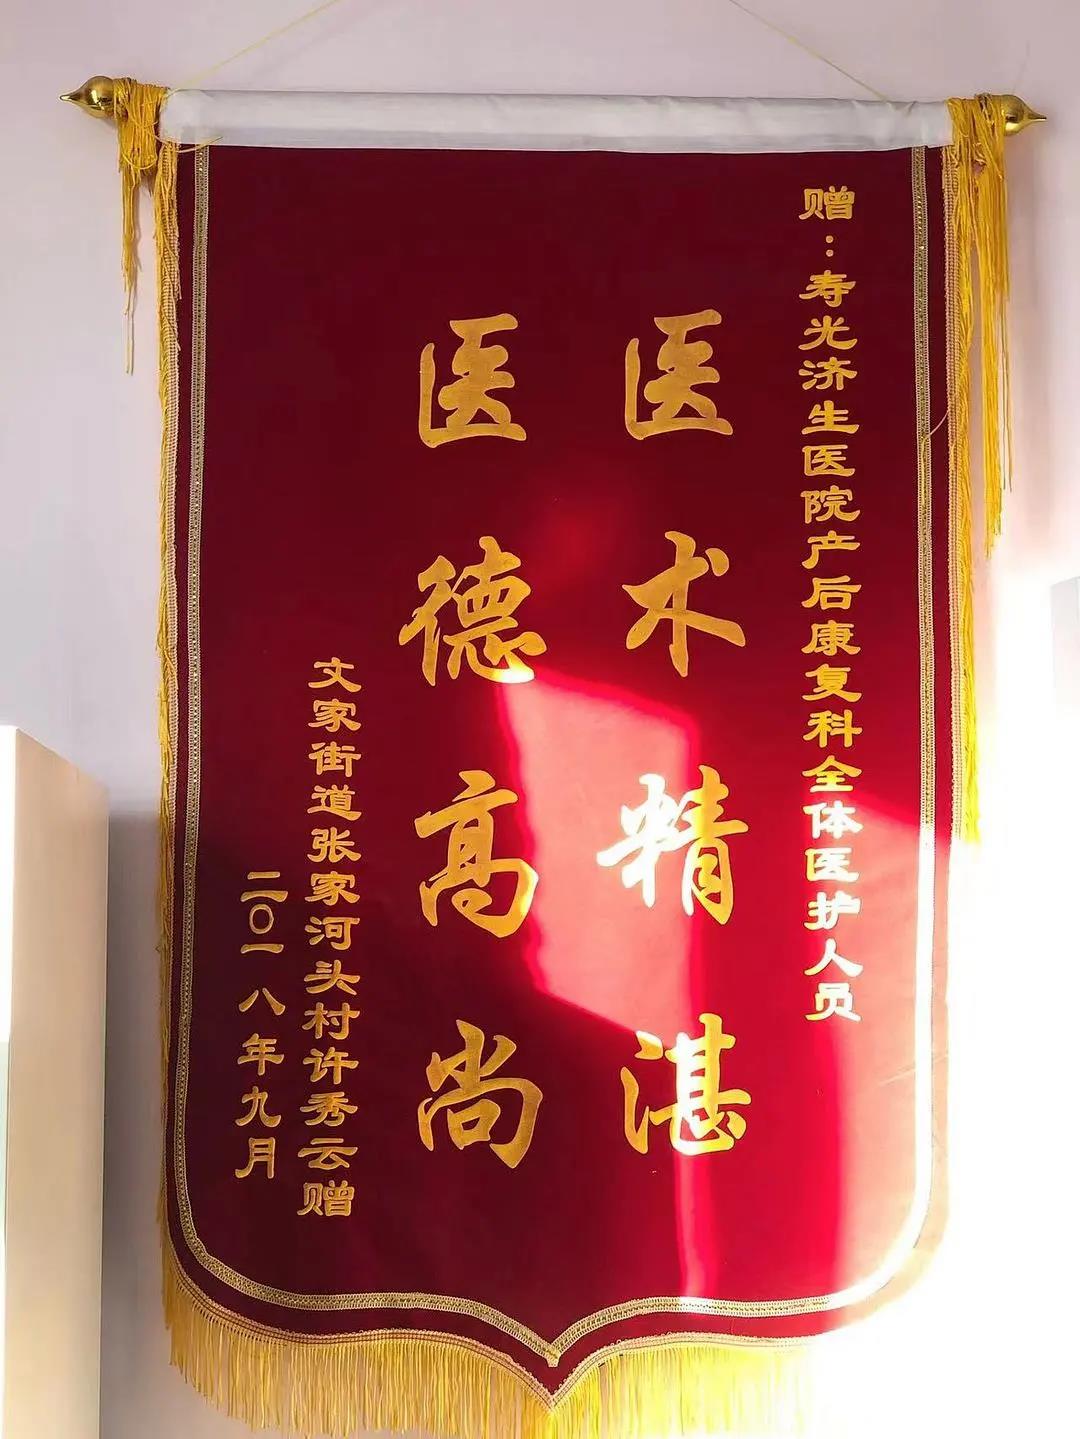 赠：寿光济生医院产后康复科全体医护人员
医术精湛
医德高尚
文家街道张家河头村许秀云赠
二〇一八年九月